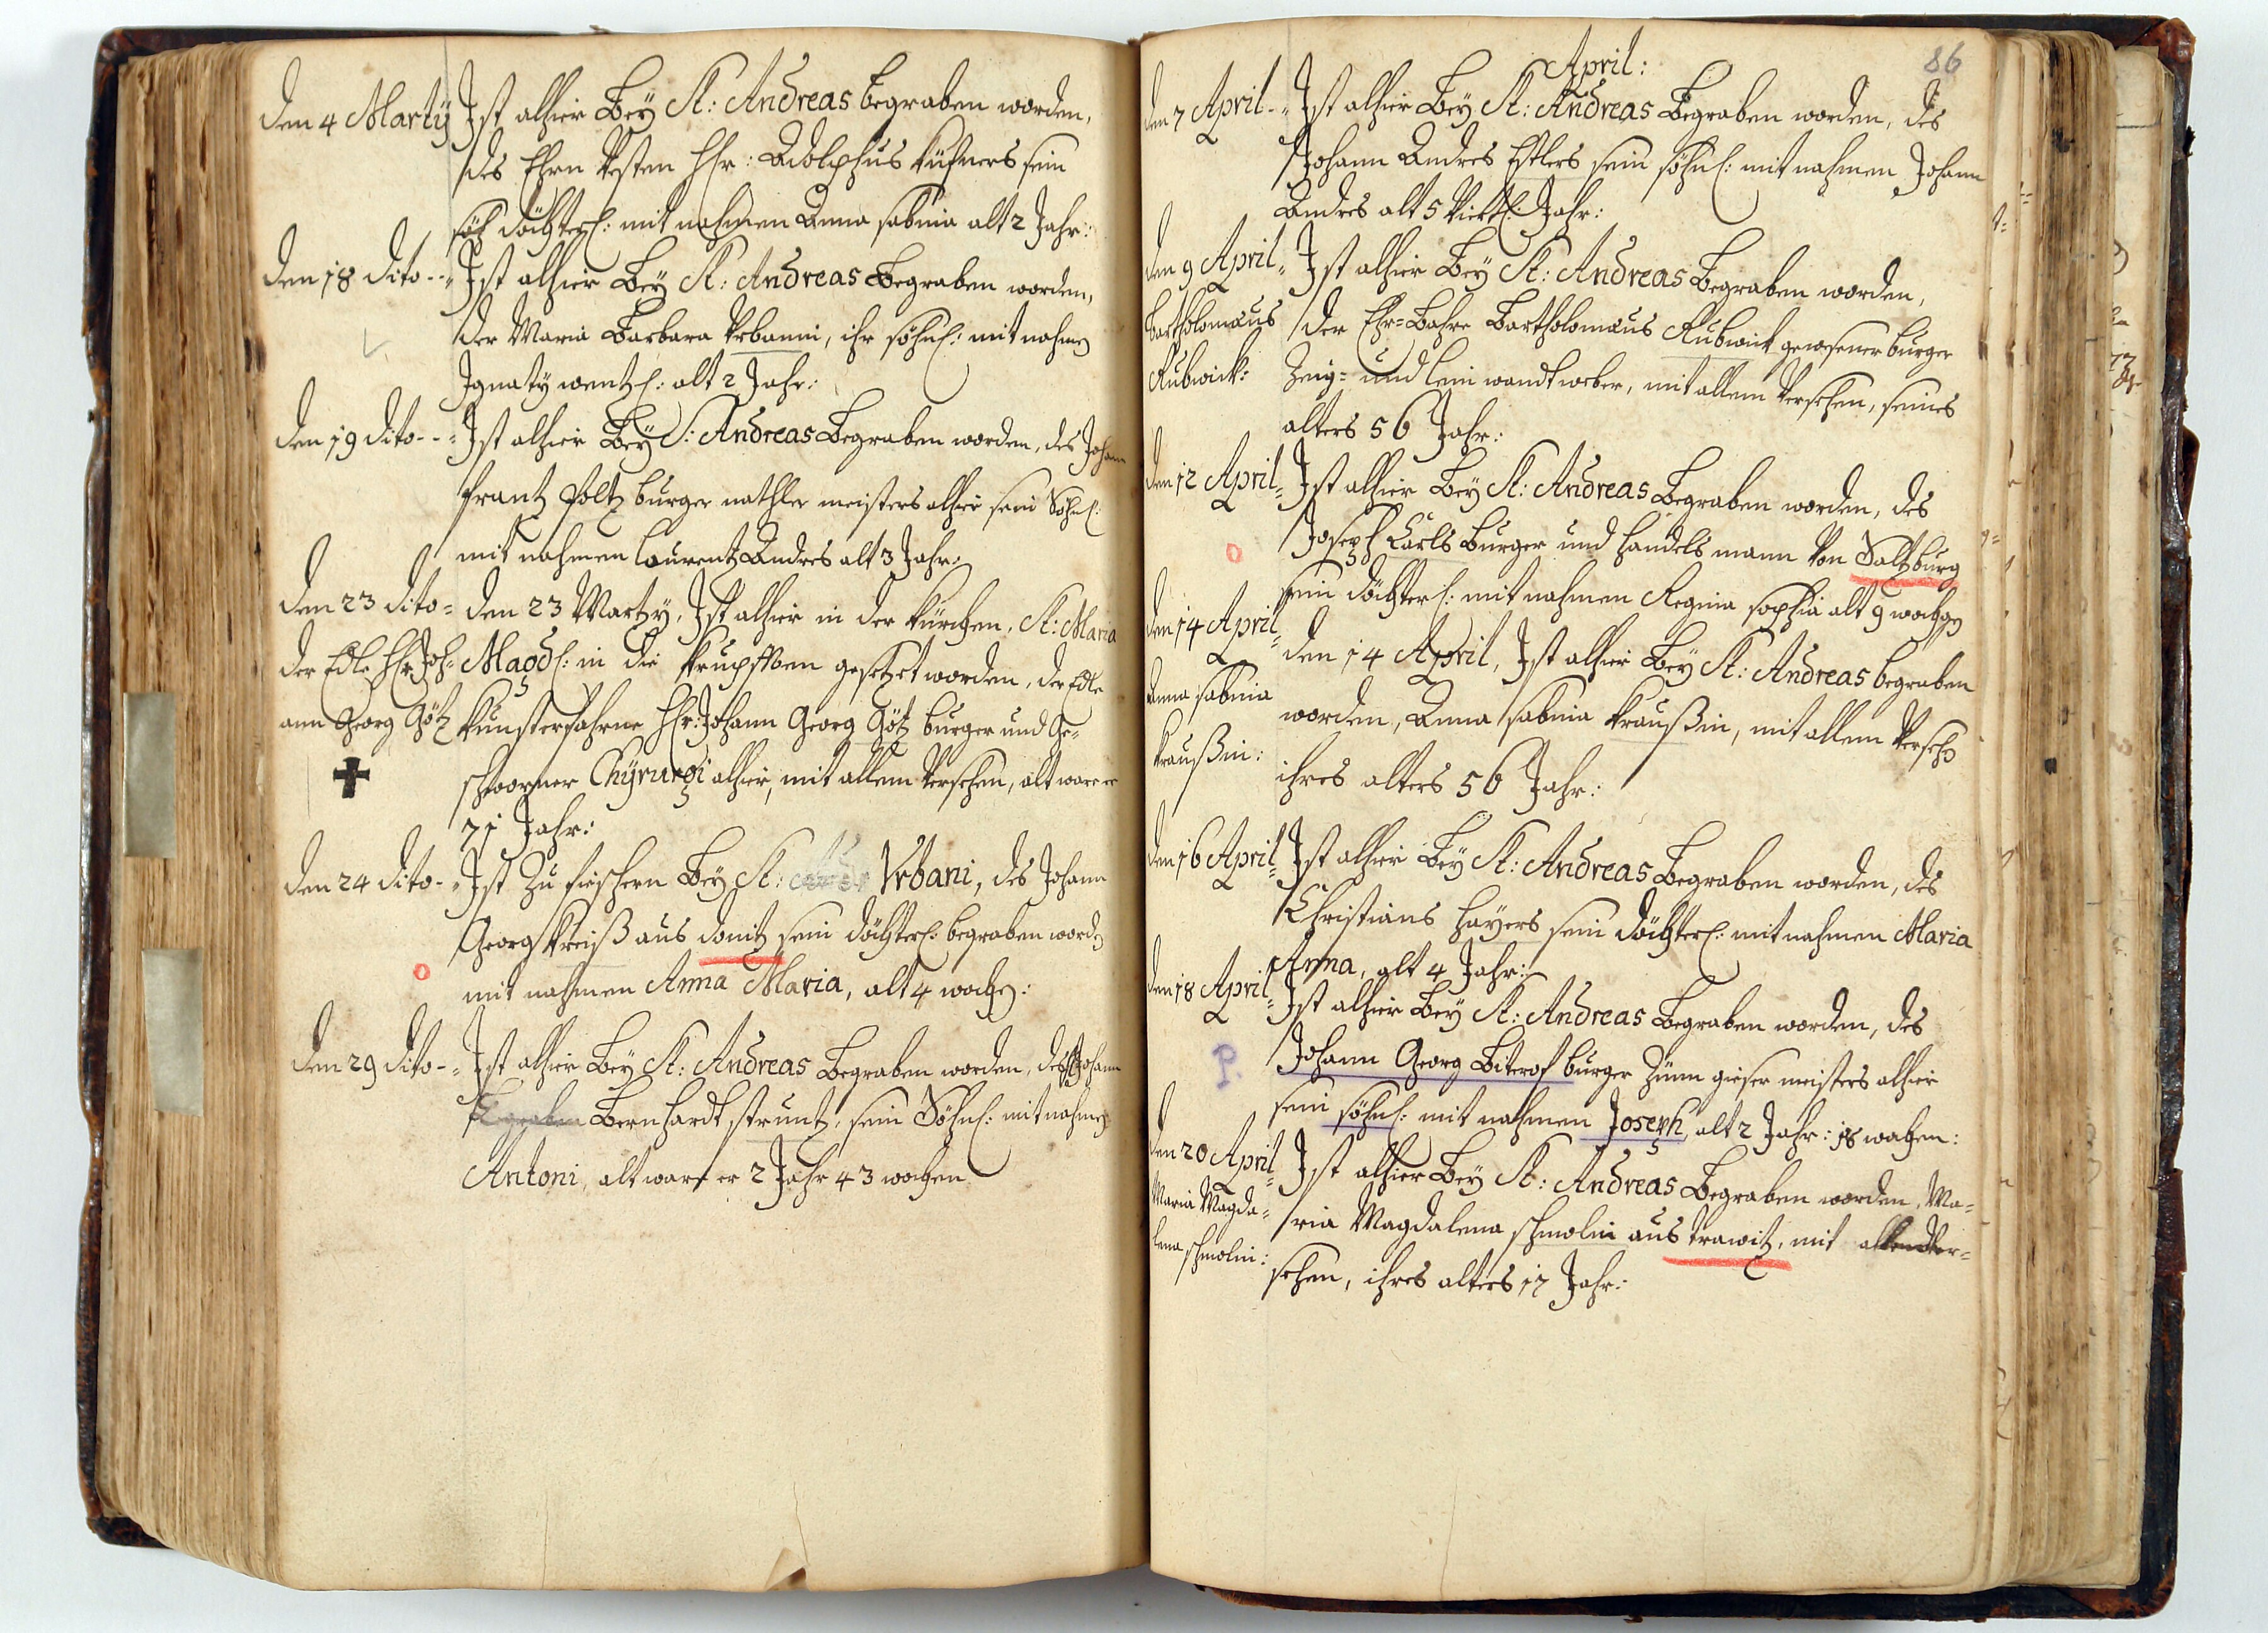 den 4 Marty Ist alhier Bey St: Andreas begraben worden,
des Ehrn Vesten Hr: Adolphus Küfners sein
döchterl: mit nahmen Anna sabina alt 2 Jahr:
den 18 dito - - Ist alhier Bey St: Andreas Begraben worden,
der Maria Barbara Vrbanin, ihr söhnl: mit nahmen
Ignaty wentzl: alt 2 Jahr:
den 19 dito - - Ist alhier Bey S: Andreas Begraben worden, des Johann
frantz Poltz burger nathler meisters alhier sein Söhnl:
mit nahmen Laurentz Andres alt 3 Jahr:
den 23 dito = den 23 Martzy, Ist alhier in der kürchen, St: Maria
der Edle Hr Joh= Magdl: in die krupfften gesetzet worden, der Edle
ann Georg Götz kunsterfahrne Hr: Johann Georg Götz burger und Ge=
schworner Chÿrurgi alhier, mit allem Versehen, alt ware er
71 Jahr:
den 24 dito - Ist Zu fischern Bey St: Vrbani, des Johann
Georg Kreiß aus donitz sein döchterl: begraben worden
mit nahmen Anna Maria, alt 4 wochen:
den 29 dito - Ist alhier Bey St: Andreas Begraben worden, des Johann
Bernhardt struntz, sein Söhnl: mit nahmen
Antoni, alt ware er 2 Jahr 43 wochen
86
April:
den 7 April - Ist alhier Bey St: Andreas Begraben worden, des
Johann Andres Estlers sein söhnl: mit nahmen Johann
Andres alt 5 Viertl: Jahr:
den 9 April = Ist alhier Bey St: Andreas Begraben worden,
Bartholomæus der Ehr=Bahre Bartholomæus Rubwick gewesener burger
Rubwick: Zeig= und leinwandt weber, mit allem Versehen, seines
alters 56 Jahr:
den 12 April = Ist alhier Bey St: Andreas Begraben worden, des
Joseph Carls burger und handels mann von Saltzburg
sein döchterl: mit nahmen Regina sophia alt 9 wochen
den 14 April = den 14 April, Ist alhier Bey St: Andreas begraben
Anna sabina worden, Anna sabina kraußin, mit allem Versehen
kraußin: ihres alters 56 Jahr:
den 16 April = Ist alhier Bey St: Andreas Begraben worden, des
Christians hayers sein döchterl: mit nahmen Maria
Anna, alt 4 Jahr:
den 18 April = Ist alhier Bey St: Andreas Begraben worden, des
P. Johann Georg Biterof burger Zünn gieser meisters alhier
sein söhnl: mit nahmen Joseph, alt 2 Jahr: 18 wochen:
den 20 April = Ist alhier Bey St: Andreas Begraben worden, Ma=
Maria Magda= ria Magdalena schmolin aus trawitz, mit allem Ver=
lena schmolin: sehen, ihres alters 17 Jahr: